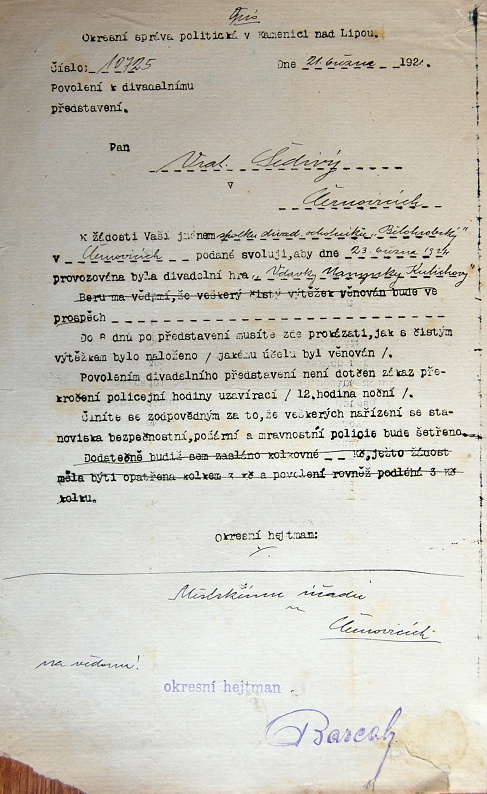 Opis
Okresní správa politická v Kamenici nad Lipou.
Číslo: 10725 Dne 21 března 1924.
Povolení k divadelnímu
představení.
Pan
Vrat. Šedivý
v
Černovicích
K žádosti Vaší jménem spolku divad. ochotníků „Bělohrobský"
v Černovicích podané svoluji, aby dne 23. března 1924
provozována byla divadelní hra „Vdavky Nanynky Kulichovy"
Beru na vědomí, že veškerý čistý výtěžek věnován bude ve
prospěch
Do 8 dnů po představení musíte zde prokázati, jak s čistým
výtěžkem bylo naloženo / jakému účelu byl věnován /.
Povolením divadelního představení není dotčen zákaz pře-
kročení policejní hodiny uzavírací / 12. hodina noční /.
Činíte se zodpovědným za to, že veškerých nařízení se sta-
noviska bezpečnostní, požární a mravnostní policie bude šetřeno.
Dodatečně budiž sem zasláno kolkovné _ _ Kč, ježto žádost
měla býti opatřena kolkem z Kč a povolení rovněž podléhá 3 Kč
kolku.
Okresní hejtman:
Městskému úřadu
v
Černovicích.
na vědomí!
okresní hejtman